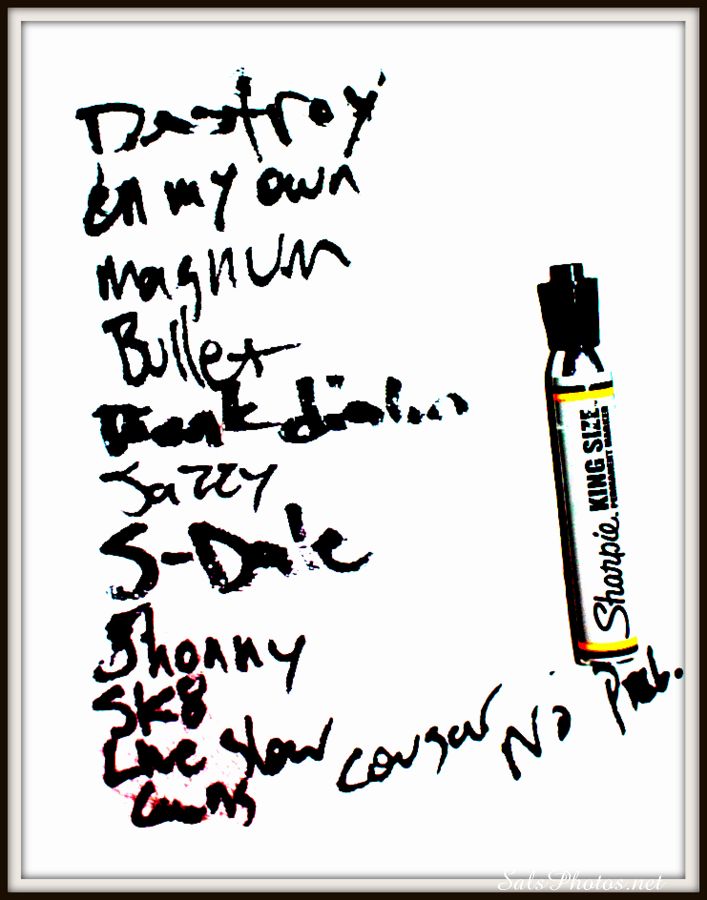 Destroy
in my own
Magnum
Bullet
Drunk
Jazzy
S-Dale
Jhonny
SK8
Live slow cougar No Prob.
Sharpie. KING SIZE™
PERMANENT MARKER
SalsPhotos.net